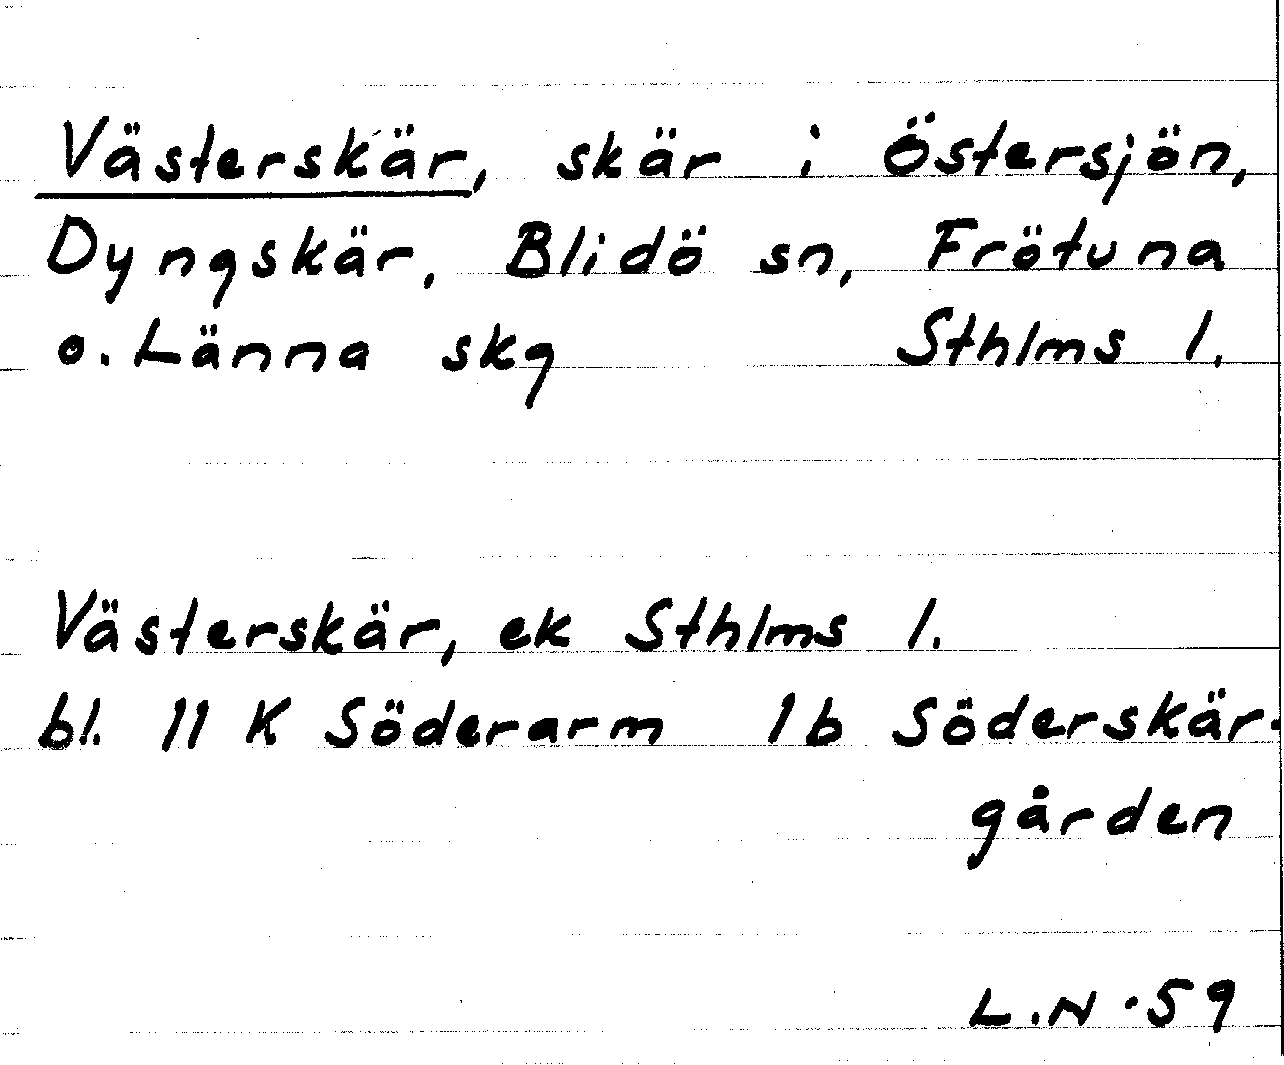 Västerskär, skär i Östersjön,
Dyngskär, Blidö sn, Frötuna
o. Länna skg Sthlms l.
Västerskär, ek Sthlms l.
bl. 11 K Söderarm 1b Söderskär-
gården
L.N. 59